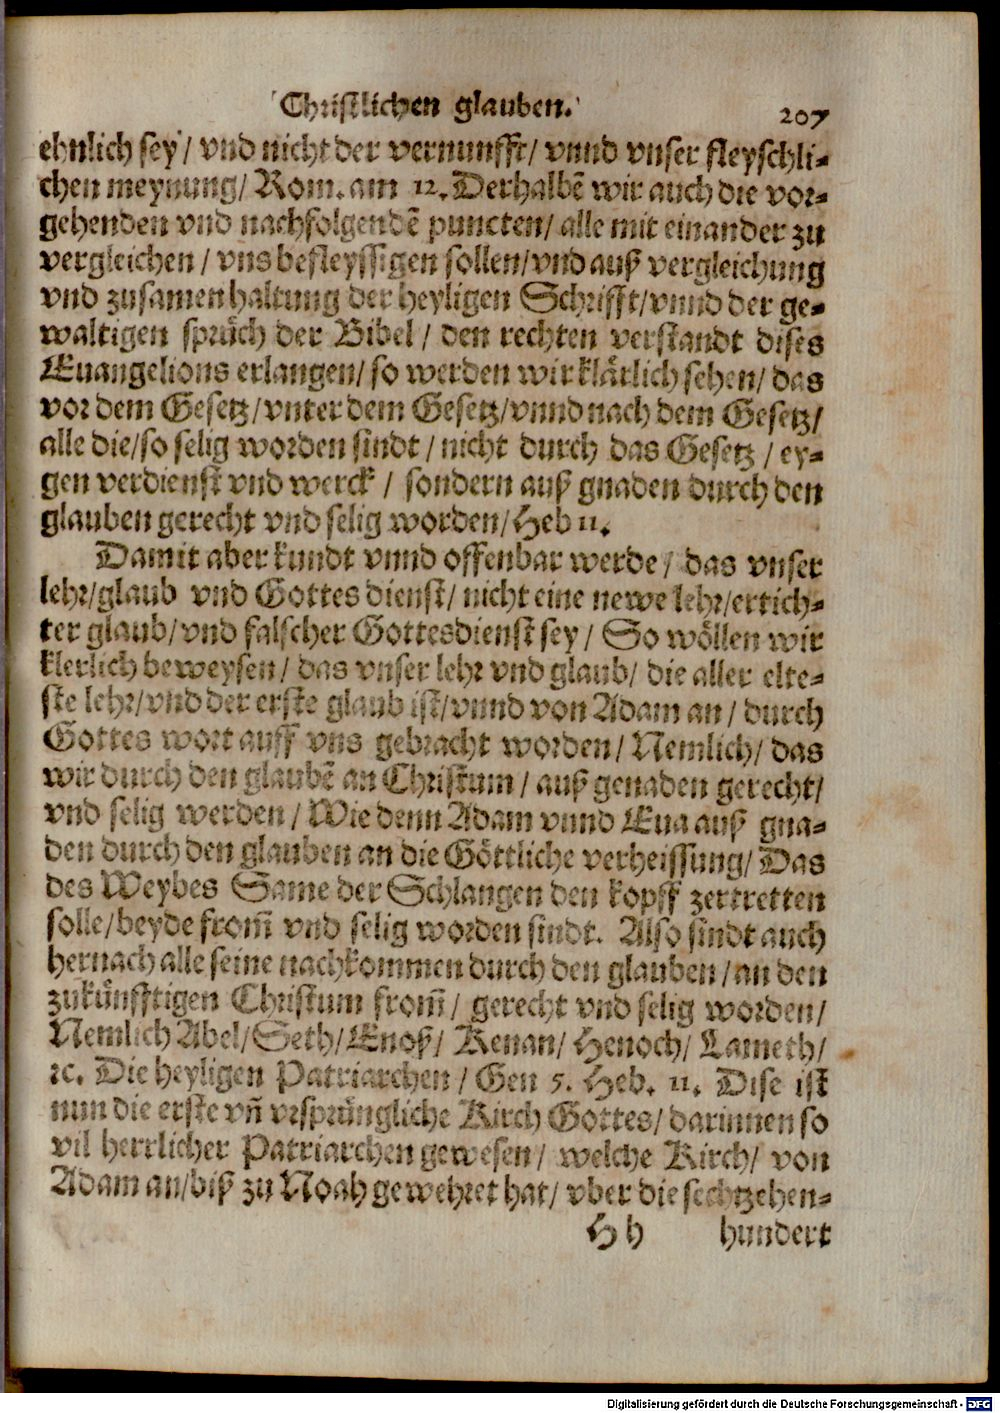 Christlichen glauben. 207
ehnlich sey / vnd nicht der vernunfft / vnnd vnser fleyschli-
chen meynung / Rom. am 12. Derhalbẽ wir auch die vor-
gehenden vnd nachfolgendẽ puncten / alle mit einander zu
vergleichen / vns befleyssigen sollen / vnd auß vergleichung
vnd zusamen haltung der heyligen Schrifft / vnnd der ge-
waltigen sprüch der Bibel / den rechten verstandt dises
Euangelions erlangen / so werden wir klärlich sehen / das
vor dem Gesetz / vnter dem Gesetz / vnnd nach dem Gesetz /
alle die / so selig worden sindt / nicht durch das Gesetz / ey-
gen verdienst vnd werck / sondern auß gnaden durch den
glauben gerecht vnd selig worden / Heb 11.
Damit aber kundt vnnd offenbar werde / das vnser
lehr / glaub vnd Gottes dienst / nicht eine newe lehr / ertich-
ter glaub / vnd falscher Gottesdienst sey / So wöllen wir
klerlich beweysen / das vnser lehr vnd glaub / die aller elte-
ste lehr / vnd der erste glaub ist / vnnd von Adam an / durch
Gottes wort auff vns gebracht worden / Nemlich / das
wir durch den glaubẽ an Christum / auß genaden gerecht /
vnd selig werden / Wie denn Adam vnnd Eua auß gna-
den durch den glauben an die Göttliche verheissung / Das
des Weybes Same der Schlangen den kopff zertretten
solle / beyde from̃ vnd selig worden sindt. Also sindt auch
hernach alle seine nachkommen durch den glauben / an den
zukünfftigen Christum from̃ / gerecht vnd selig worden /
Nemlich Abel / Seth / Enoß / Kenan / Henoch / Lameth /
ꝛc. Die heyligen Patriarchen / Gen 5. Heb. 11. Dise ist
nun die erste vñ vrsprüngliche Kirch Gottes / darinnen so
vil herrlicher Patriarchen gewesen / welche Kirch / von
Adam an / biß zu Noah gewehret hat / vber die sechtzehen-
H h hundert
Digitalisierung gefördert durch die Deutsche Forschungsgemeinschaft - DFG